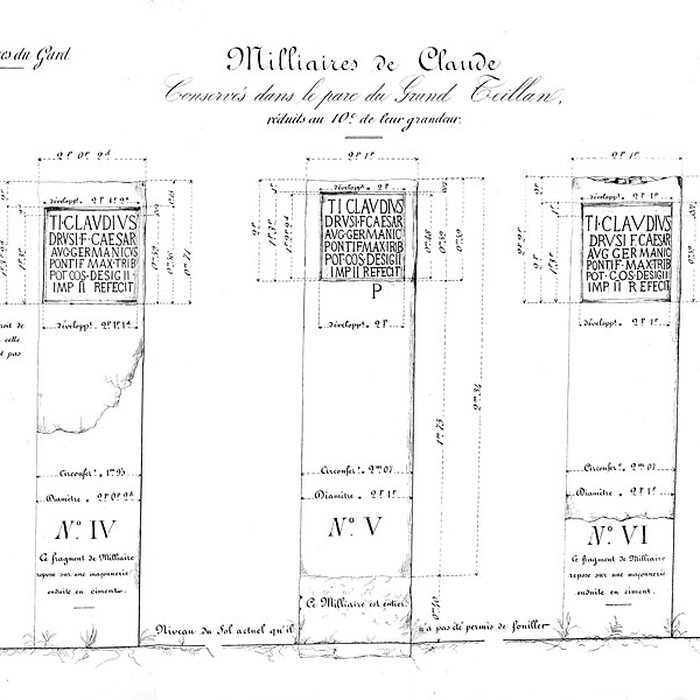 res du Gard
Milliaires de Claude
Conservés dans le parc du Grand Teillan,
réduits au 10e de leur grandeur.
2P. 0P. 2d
développt. 2P. 1P. 2d
TI·CLAVDIVS
DRVSI·F·CAESAR
AVG·GERMANICVS
PONTIF·MAX·TRIB
POT·COS·DESIG II·
IMP II REFECIT
développt. 2P. 1P. 1d
roit de
cette
t pas
Circonfer. 1m 93
Diamètre 2P. 0P. 2d
No. IV
Ce fragment de Milliaire
repose sur une maçonnerie
enduite en ciment.
2P. 1P
développt. 2P
TI CLAVDIVS
DRVSI·F·CAESAR
AVG·GERMANIC
PONTIF·MAX·TRIB
POT·COS·DESIG II
IMP II REFECIT
P
développt. 2P
Circonfer. 2m 07
Diamètre 2P. 1P
No. V
1m 73
Ce Milliaire est entier.
2P. 1P
développt. 2P. 1P
TI·CLAVDIVS
DRVSI F CAESAR
AVG GERMANIC
PONTIF·MAX·TRIB
POT·COS·DESIG II
IMP II REFECIT
développt. 2P. 1P
Circonfer. 2m 07
Diamètre 2P. 1P
No. VI
Ce fragment de Milliaire
repose sur une maçonnerie
enduite en ciment.
Niveau du Sol actuel qu'il n'a pas été permis de fouiller